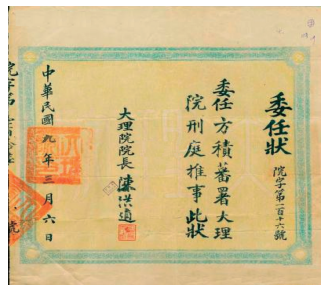 委任狀
院字第一百十六號
委任方積蕃署大理
院刑庭推事此狀
大理院院長
中華民國九年三月六日